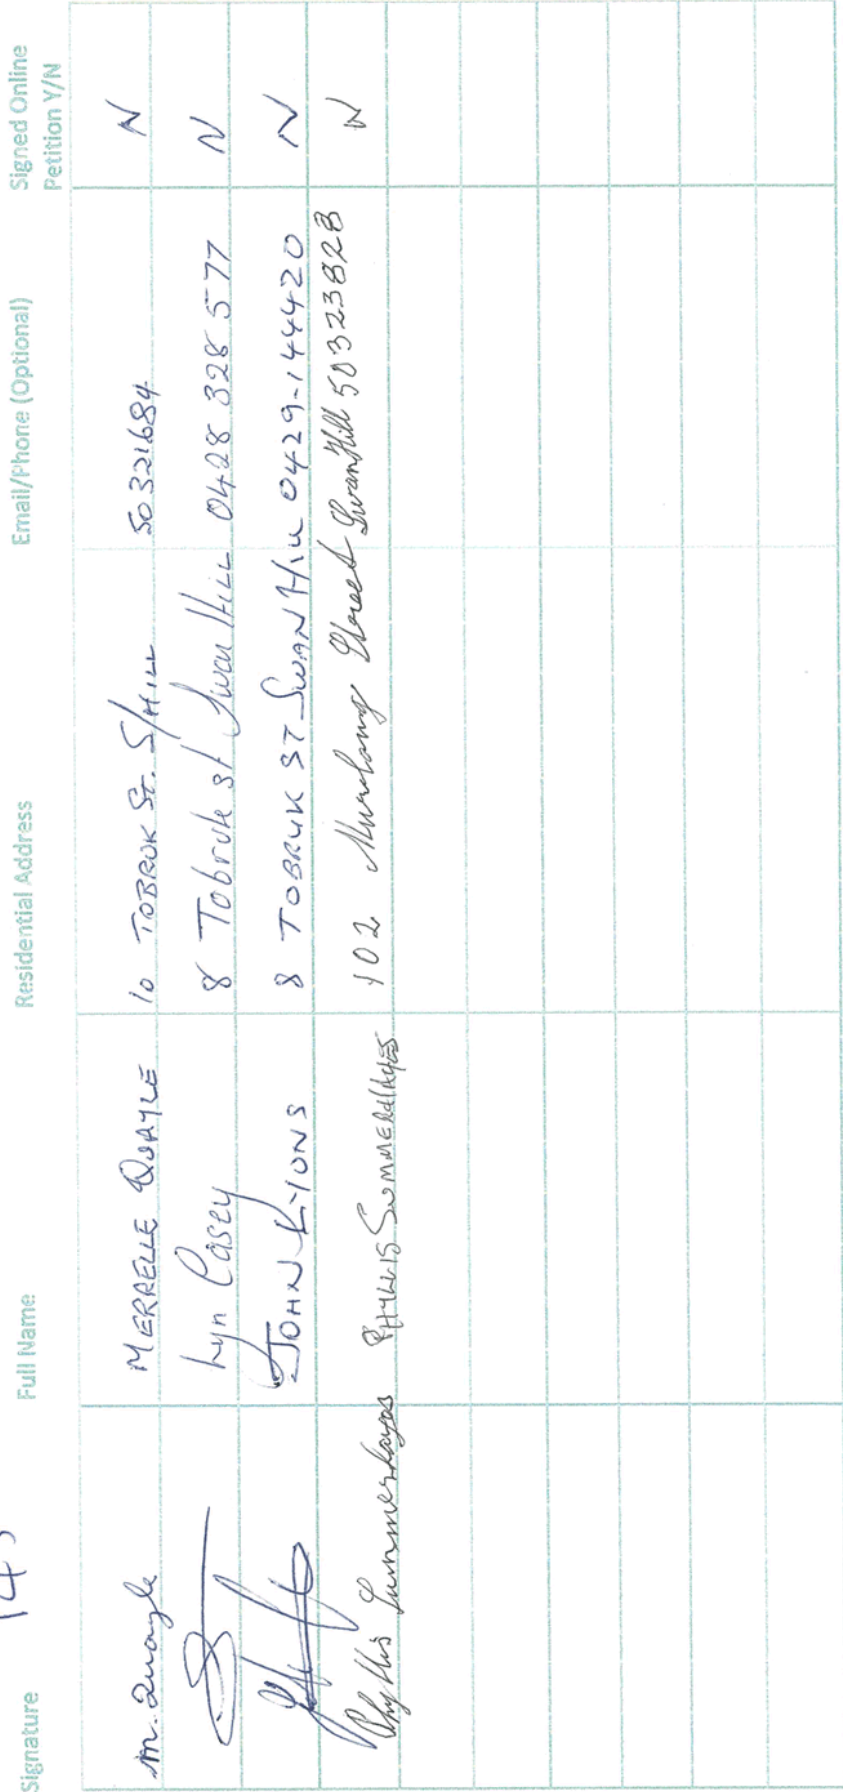 145
Signature Full Name Residential Address Email/Phone (Optional) Signed Online Petition Y/N
m. Quayle MERRELLE QUAYLE 10 TOBRUK St. S/HILL 50 321684 N
Lyn Casey 8 Tobruk st Swan Hill 0428 328 577 N
JOHN LYONS 8 TOBRUK ST SWAN HILL 0429-144420 N
Phyllis Summerhayes PHYLLIS SUMMERHAYES 102 Street Swan Hill 50323828 N